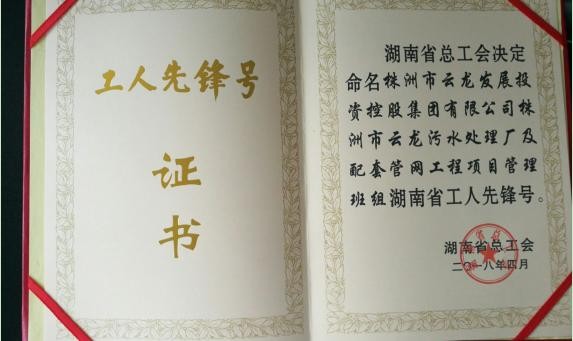 工人先锋号
证
书
湖南省总工会决定
命名株洲市云龙发展投
资控股集团有限公司株
洲市云龙污水处理厂及
配套管网工程项目管理
班组湖南省工人先锋号。
湖南省总工会
二〇一八年四月